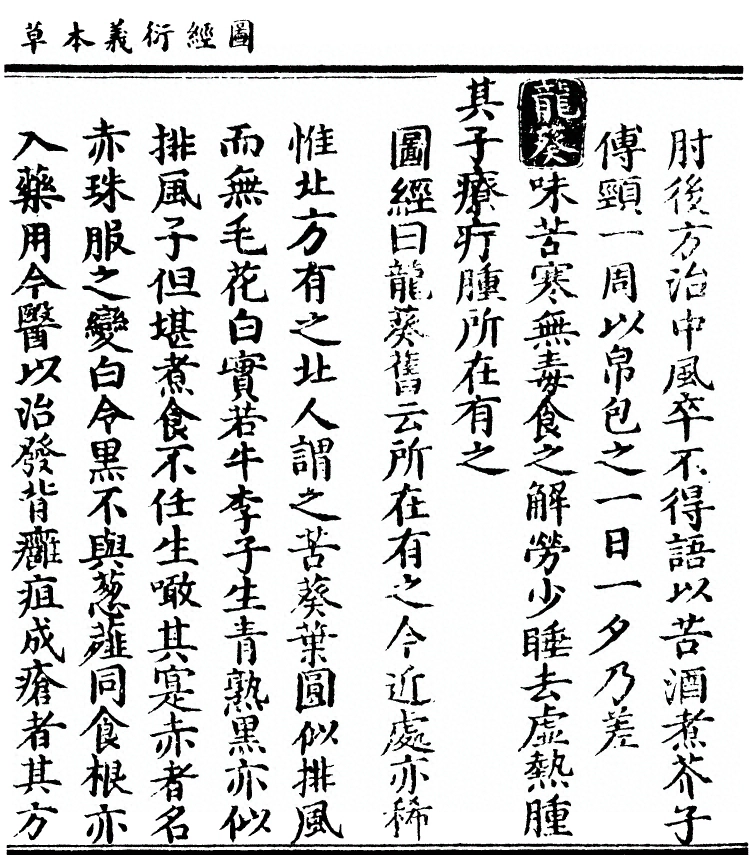 圖經衍義本草
肘後方治中風卒不得語以苦酒煮芥子
傅頸一周以帛包之一日一夕乃差
龍葵味苦寒無毒食之解勞少睡去虛熱腫
其子療疔腫所在有之
圖經曰龍葵舊云所在有之今近處亦稀
惟北方有之北人謂之苦葵葉圓似排風
而無毛花白實若牛李子生青熟黑亦似
排風子但堪煮食不任生噉其寔赤者名
赤珠服之變白令黑不與葱薤同食根亦
入藥用今醫以治發背癰疽成瘡者其方